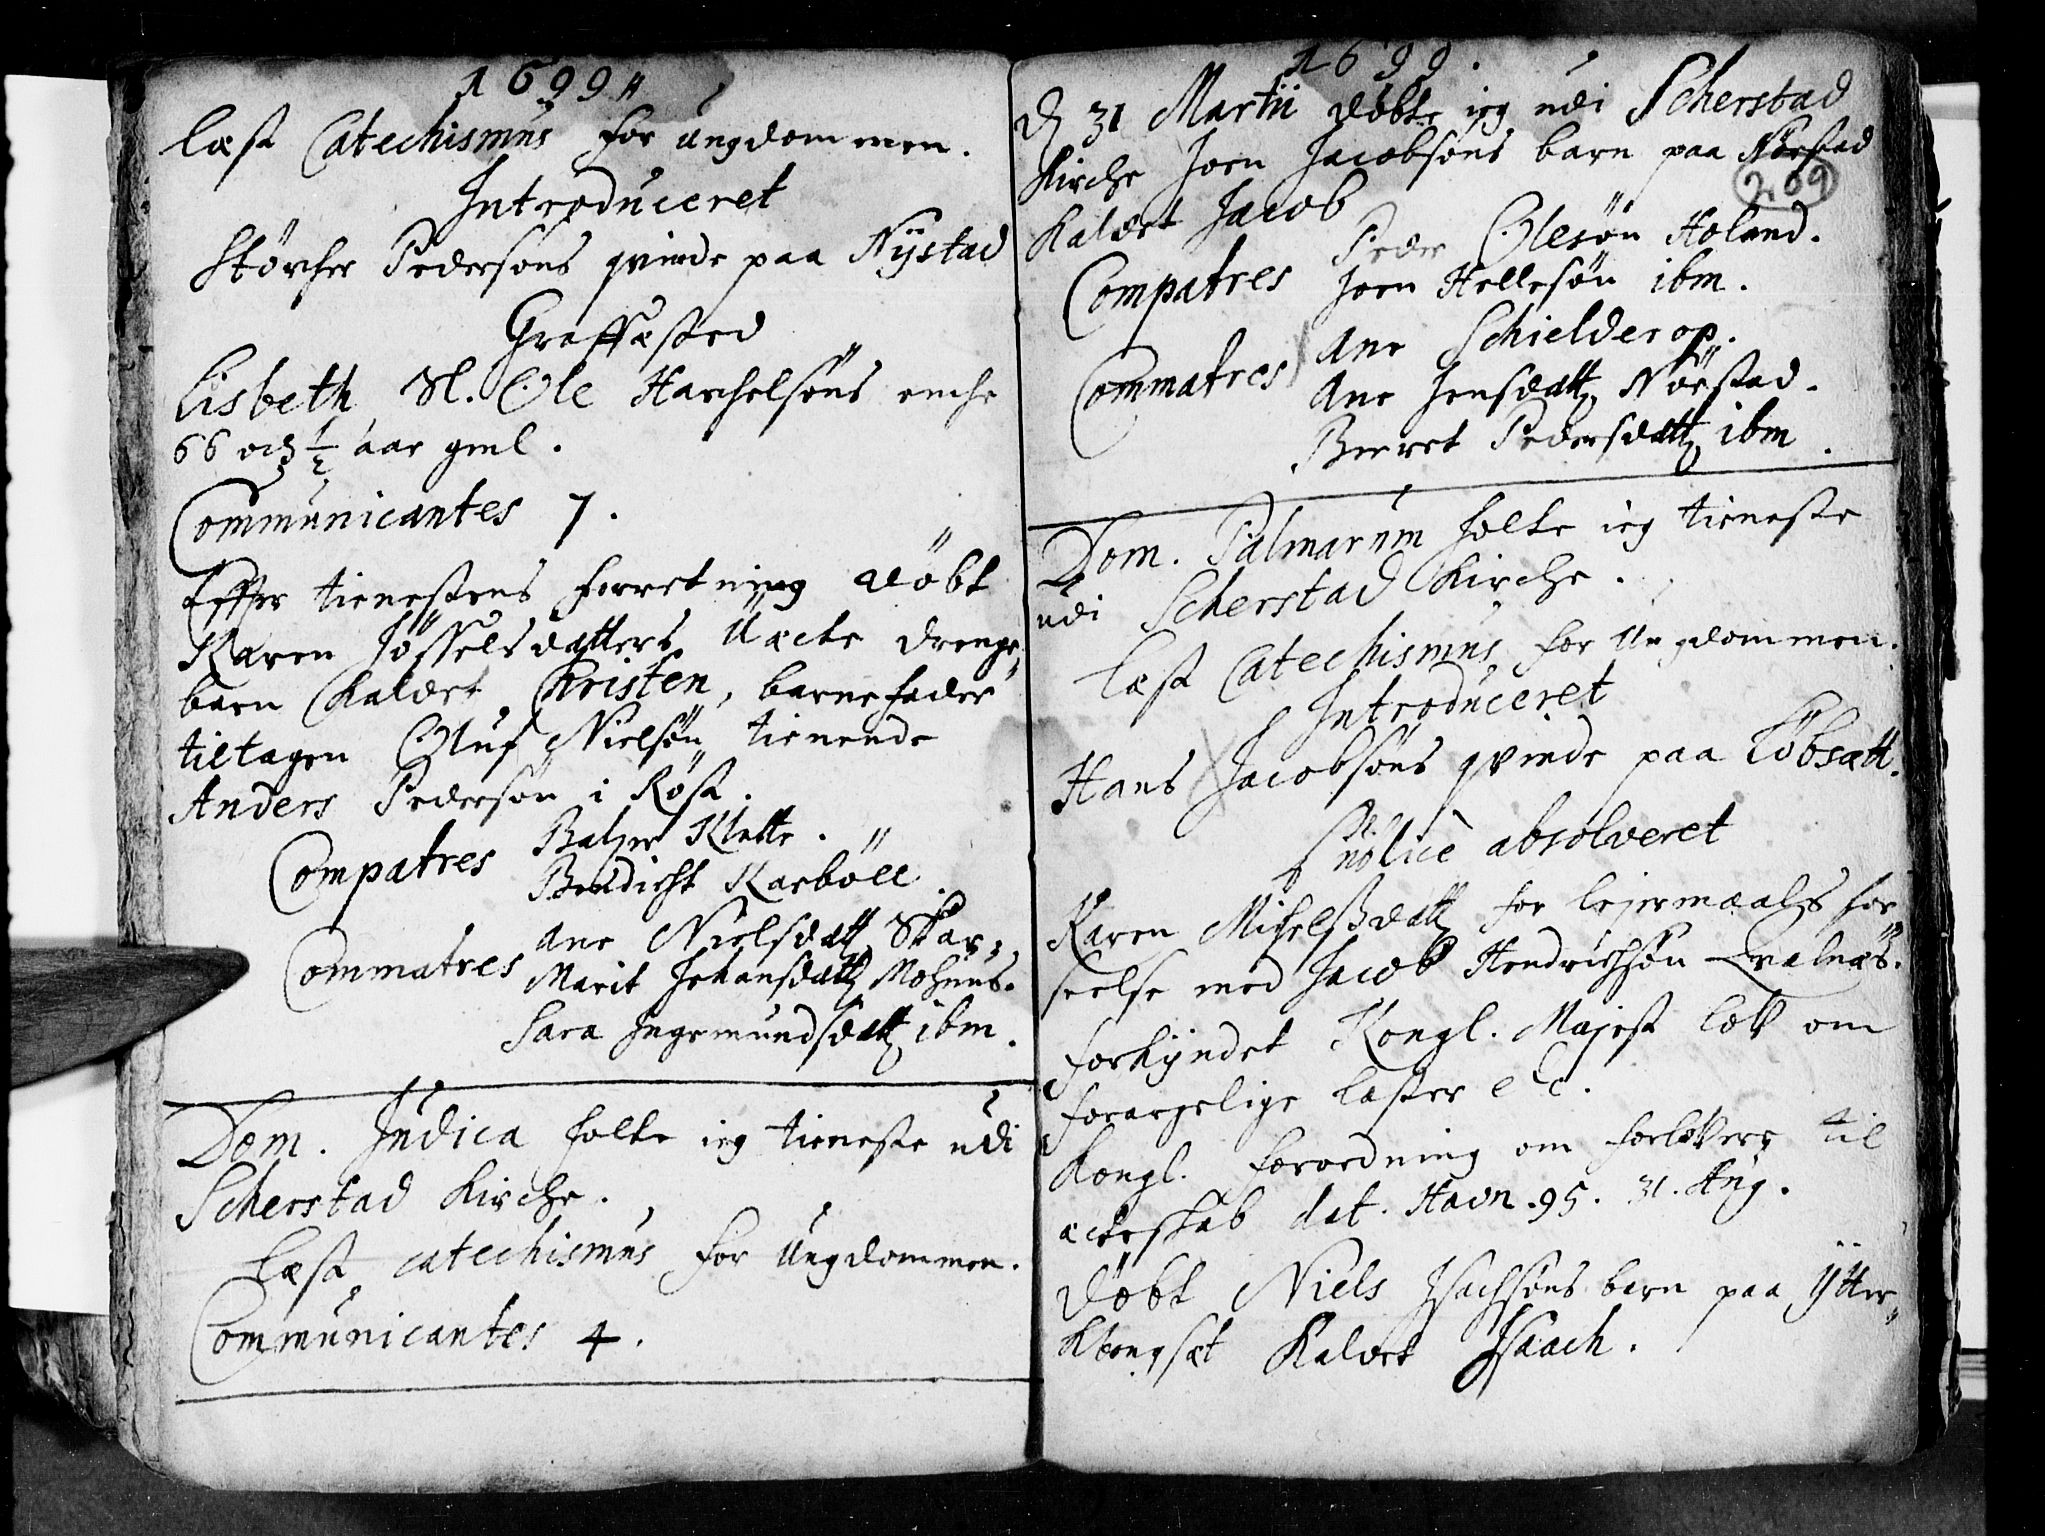 1699
læst Catechismus for ungdommen.
Introduceret
Størcher Pedersøns qvinde paa Nÿstad
Graffæsted
Lisbeth Sl. Ole Harchelsøns enche
66 och 1/2 aar gml.
Communicantes 7.
Effter tienestens forretning døbt
Karen Jösselsdatters Uæcte drenge
barn Kaldet Christen, barnefader
tiltagen Oluf Nielsøn tienende
Anders Pedersøn i Røst.
Compatres Balzer Klette.
Bendicht Karbøll.
Commatres Ane Nielsdatt Skar,
Marit Johansdatt Mohuus.
Sara Ingemundsdatt ibm.
Dom. Judica holte ieg tieneste udi
Scherstad Kirche.
Læst catechismus for Ungdommen.
Communicantes 4.
1699.
209
D 31 Martii døbte ieg udi Scherstad
Kirche Joen Jacobsøns barn paa Nørstad
Kaldet Jacob
Compatres Peder Olesøn Holand.
Joen Hellesøn ibm.
Commatres Ane Schielderop.
Ane Jensdatt Nörstad.
Berret Pedersdatt ibm.
Dom. Palmarum holte ieg tieneste
udi Scherstad Kirche.
Læst Catechismus for Ungdommen.
Introduceret
Hans Jacobsøns qvinde paa Löbsætt.
absolveret
Karen Michelsdatt for lejermaals for,,
seelse med Jacob Hendrichsøn Evalnæs.
forkÿndet Kongl. Majest lov om
forargelige laster etc.
Kongl. forordning om forlovere til
ecteskab dat. Havn. 95. 31. Aug.
Døbt Niels Isachsøns barn paa ÿtter,,
Klongsæt Kaldet Isaach.